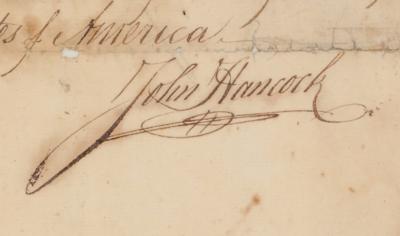 of America
John Hancock